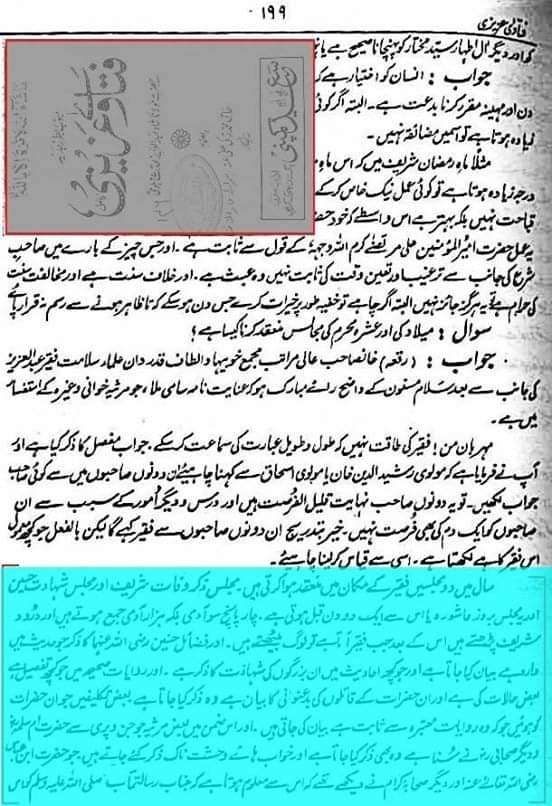 فتاویٰ عزیزی
۱۹۹
کو اور دیگر ال اطہار سید مختار کو پہنچانا صحیح ہے یا
جواب : انسان کو اختیار ہے کہ
دن اور مہینہ مقرر کرنا بدعت ہے۔ البتہ اگر کوئی
زیادہ ہوتا ہے تو اسمیں مضائقہ نہیں۔
مثلاً ماہ رمضان شریف میں کہ اس ماہ میں
درجہ زیادہ ہوتا ہے تو کوئی عمل نیک خاص کر کے
قباحت نہیں بلکہ بہتر ہے اس واسطے کہ خود حضر
فتاویٰ عزیزی
سعید کمپنی
یہ عمل حضرت امیر المؤمنین علی مرتضےٰ کرم اللہ وجہہ کے قول سے ثابت ہے۔ اور جس چیز کے بارے میں صاحب
شرع کی جانب سے ترغیب اور تعین وقت کی ثابت نہیں وہ عبث ہے۔ اور خلاف سنت ہے اور مخالفت سنت
کی حرام ہے یہ ہرگز جائز نہیں البتہ اگر چاہے تو خفیہ طور پر خیرات کرے جس دن ہو سکے کہ تا ظاہر ہونے سے رسم نہ قرار پائے
سوال : میلاد کی اور عشرہ محرم کی مجالس منعقد کرنا کیسا ہے؟
جواب : (رقعہ) خانصاحب عالی مراتب مجمع خوبیہا و الطاف قدردان علماء سلامت فقیر عبد العزیز
کی جانب سے بعد سلام مسنون کے واضح رائے مبارک ہو کہ عنایت نامہ سامی ملا، جو مرثیہ خوانی وغیرہ کے استفسار
میں ہے۔
مہربان من! فقیر کی طاقت نہیں کہ طول و طویل عبارت کی سماعت کر سکے۔ جواب مفصل کا ذکر کیا ہے اور
آپ نے فرمایا ہے کہ مولوی رشید الدین خان یا مولوی اسحاق سے کہنا چاہیئے ان دونوں صاحبوں میں سے کوئی صاحب
جواب لکھیں۔ تو یہ دونوں صاحب نہایت قلیل الفرصت ہیں اور درس و دیگر امور کے سبب سے ان
صاحبوں کو ایک دم کی بھی فرصت نہیں۔ خیر بتدریج ان دونوں صاحبوں سے فقیر کہے گا لیکن بالفعل جو کچھ معمول
اس فقیر کا ہے لکھتا ہے۔ اسی سے قیاس کر لینا چاہیئے۔
سال میں دو مجلسیں فقیر کے مکان میں منعقد ہوا کرتی ہیں۔ مجلس ذکر وفات شریف اور مجلس شہادت حسین
اور یہ مجلس بروز عاشورہ یا اس سے ایک دو دن قبل ہوتی ہے۔ چار پانچ سو آدمی بلکہ ہزار آدمی جمع ہوتے ہیں اور درود
شریف پڑھتے ہیں اس کے بعد جب فقیر آتا ہے تو لوگ بیٹھتے ہیں۔ اور فضائل حسنین رضی اللہ عنہما کا ذکر جو حدیث میں
وارد ہے بیان کیا جاتا ہے اور جو کچھ احادیث میں ان بزرگوں کی شہادت کا ذکر ہے۔ اور روایات صحیحہ میں جو کچھ تفصیل ہے
بعض حالات کی ہے اور ان حضرات کے قاتلوں کی بدعنوانی کا بیان ہے وہ ذکر کیا جاتا ہے بعض تکلیفیں جو ان حضرات
کو ہوئیں جو کہ وہ روایات معتبرہ سے ثابت ہے بیان کی جاتی ہیں۔ اور اس ضمن میں بعض مرثیہ جو جن و پری سے حضرت ام سلمہ
و دیگر صحابی رضی نے سنا ہے وہ بھی ذکر کیا جاتا ہے اور خواب ہائے وحشت ناک ذکر کئے جاتے ہیں۔ جو حضرت ابن عباس
رضی اللہ تعالے عنہ اور دیگر صحابہ کرام نے دیکھے تھے کہ اس سے معلوم ہوتا ہے کہ جناب رسالتمآب صلی اللہ علیہ وسلم کو اس